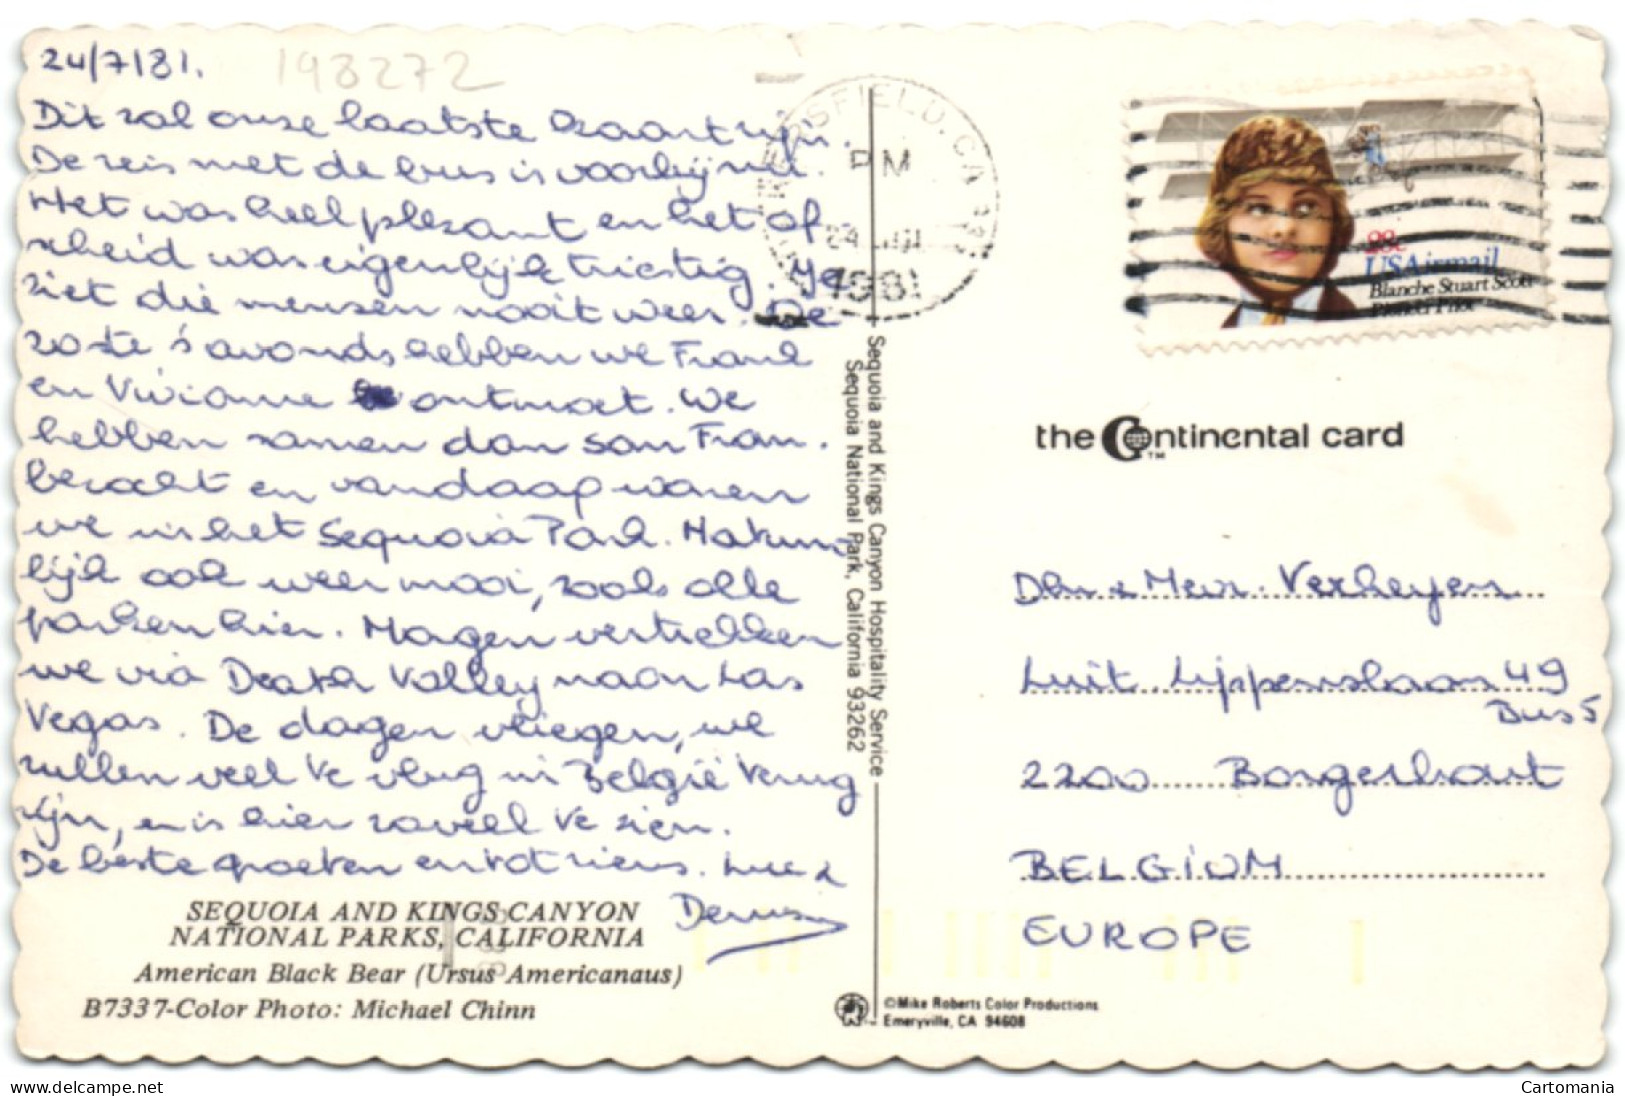 24/7/81.
198272
Dit zal onze laatste kaart zijn.
De reis met de bus is voorbij nu.
Het was heel plezant en het af
scheid was eigenlijk triestig. Je
ziet die mensen nooit weer. De
20ste 's avonds hebben we Frank
en Vivianne ontmoet. We
hebben samen dan San Fran.
bezocht en vandaag waren
we in het Sequoia Park. Natuur
lijk ook weer mooi, zoals alle
parken hier. Morgen vertrekken
we via Death Valley naar Las
Vegas. De dagen vliegen, we
zullen veel te vlug in België terug
zijn, er is hier zoveel te zien.
De beste groeten en tot ziens. Luc &
Denise
SEQUOIA AND KINGS CANYON
NATIONAL PARKS, CALIFORNIA
American Black Bear (Ursus Americanaus)
B7337-Color Photo: Michael Chinn
Sequoia and Kings Canyon Hospitality Service
Sequoia National Park, California 93262
©Mike Roberts Color Productions
Emeryville, CA 94608
RSFIELD, CA 933
PM
24 JUL
1981
USAirmail
Blanche Stuart Scott
Pioneer Pilot
the Continental card
TM
Dhr & Mevr. Verheyen
Luit. Lippenslaan 49
Bus 5
2200 Borgerhout
BELGIUM
EUROPE
delcampe.net
Cartomania